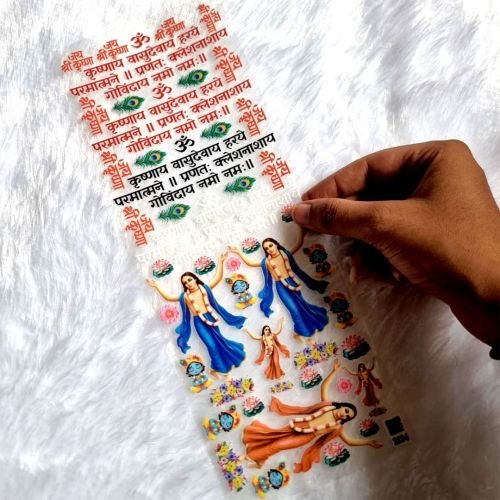 जय श्री कृष्णा ॐ जय श्री कृष्णा
कृष्णाय वासुदेवाय हरये
परमात्मने ॥ प्रणतः क्लेशनाशाय
गोविंदाय नमो नमः॥
ॐ
कृष्णाय वासुदेवाय हरये
परमात्मने ॥ प्रणतः क्लेशनाशाय
गोविंदाय नमो नमः॥
जय श्री कृष्णा ॐ जय श्री कृष्णा
कृष्णाय वासुदेवाय हरये
परमात्मने ॥ प्रणतः क्लेशनाशाय
गोविंदाय नमो नमः॥